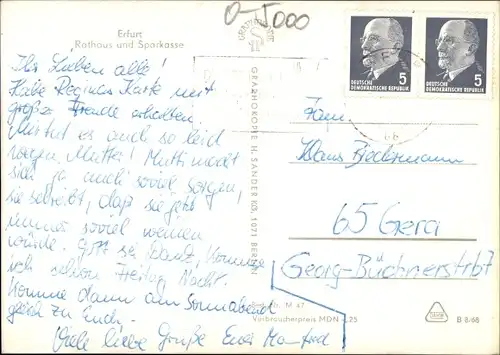 Erfurt
Rathaus und Sparkasse
0-5000
GRAPHOKOPIE H. SANDER KG, 1071 BERLIN
DEUTSCHE
DEMOKRATISCHE REPUBLIK
5
DEUTSCHE
DEMOKRATISCHE REPUBLIK
5
Ihr Lieben alle!
Habe Reginas Karte mit
große Freude erhalten.
Mir tut es auch so leid
wegen Mutti! Mutti macht
sich ja auch soviel sorgen,
sie schreibt, daß sie jetzt
immer soviel weinen
würde. Gott sei Dank, komme
ich schon Freitag Nacht.
Komme dann am Sonnabend
gleich zu Euch.
Viele liebe Grüße Euer Manfred
Fam.
Klaus Biedermann
65 Gera
Georg-Büchnerstr 67
M 47
Verbraucherpreis MDN 0,25
B 8/68